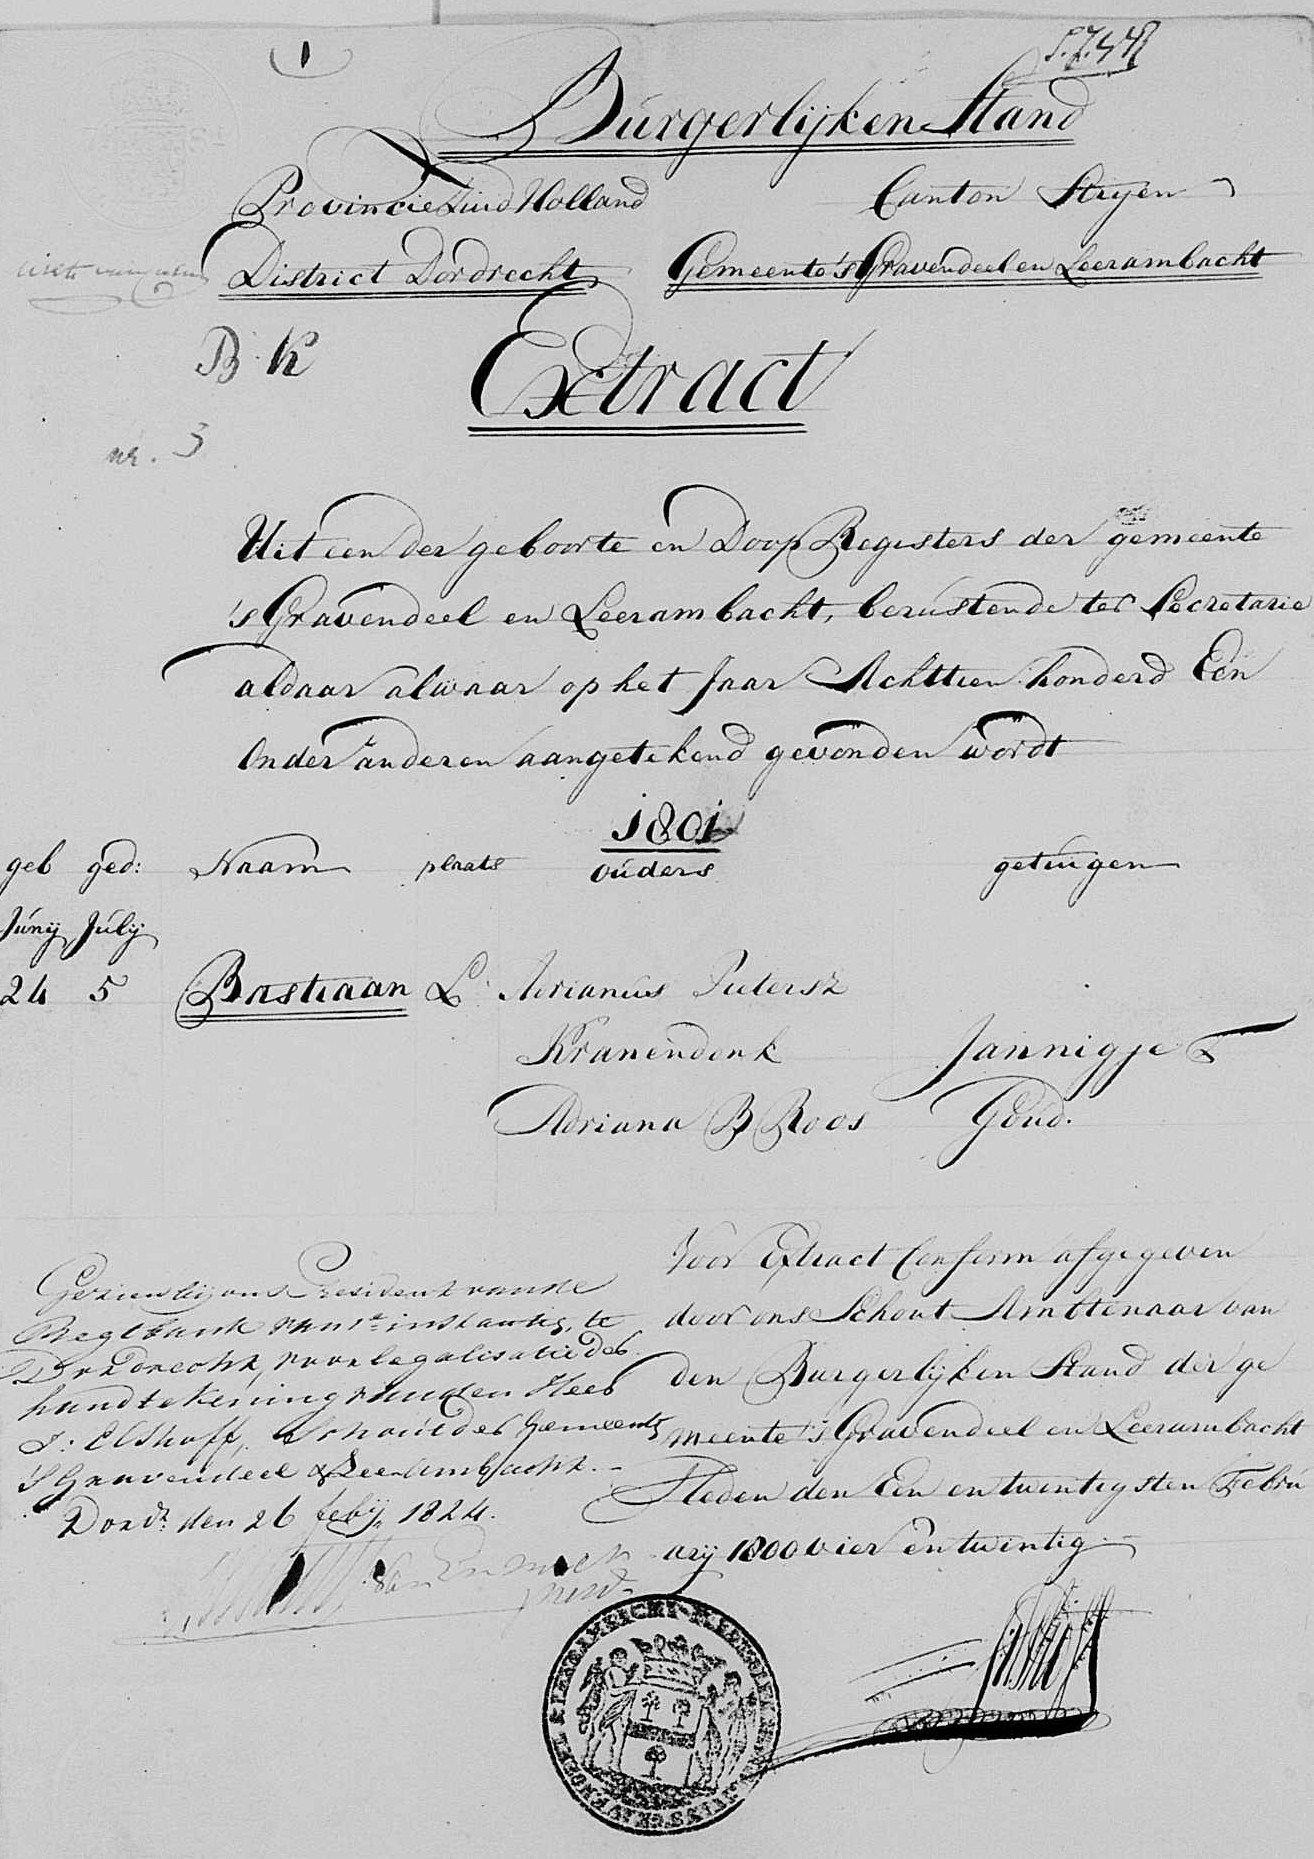 1
Burgerlijken Stand
Provincie Zuid Holland Canton Stryen
District Dordrecht Gemeente 's Gravendeel en Leerambacht
B. K
Extract
nr. 3
Uit een der geboorte en Doop Registers der gemeente
's Gravendeel en Leerambacht, berustende ter Secretarie
aldaar alwaar op het Jaar Achttien honderd Een
Onder anderen aangetekend gevonden wordt
1801
geb ged: Naam plaats ouders getuigen
Junij Julij
24 5 Bastiaan L. Adrianus Pietersz
Kranendonk Jannigje
Adriana B Roos Goud.
Voor Extract Conform afgegeven
door ons Schout Amttenaar van
den Burgerlijken Stand der ge
meente 's Gravendeel en Leerambacht
Heden den Een en twintigsten Febru
arij 1800 vier en twintig
Gezien bij ons President van de
Regtbank van 1e instantie, te
Dordrecht, voor legalisatie der
handtekening van den Heer
J: Elshoff, Schout der Gemeente
's Gravendeel & Leerambacht.
Dordt. den 26 febij. 1824.